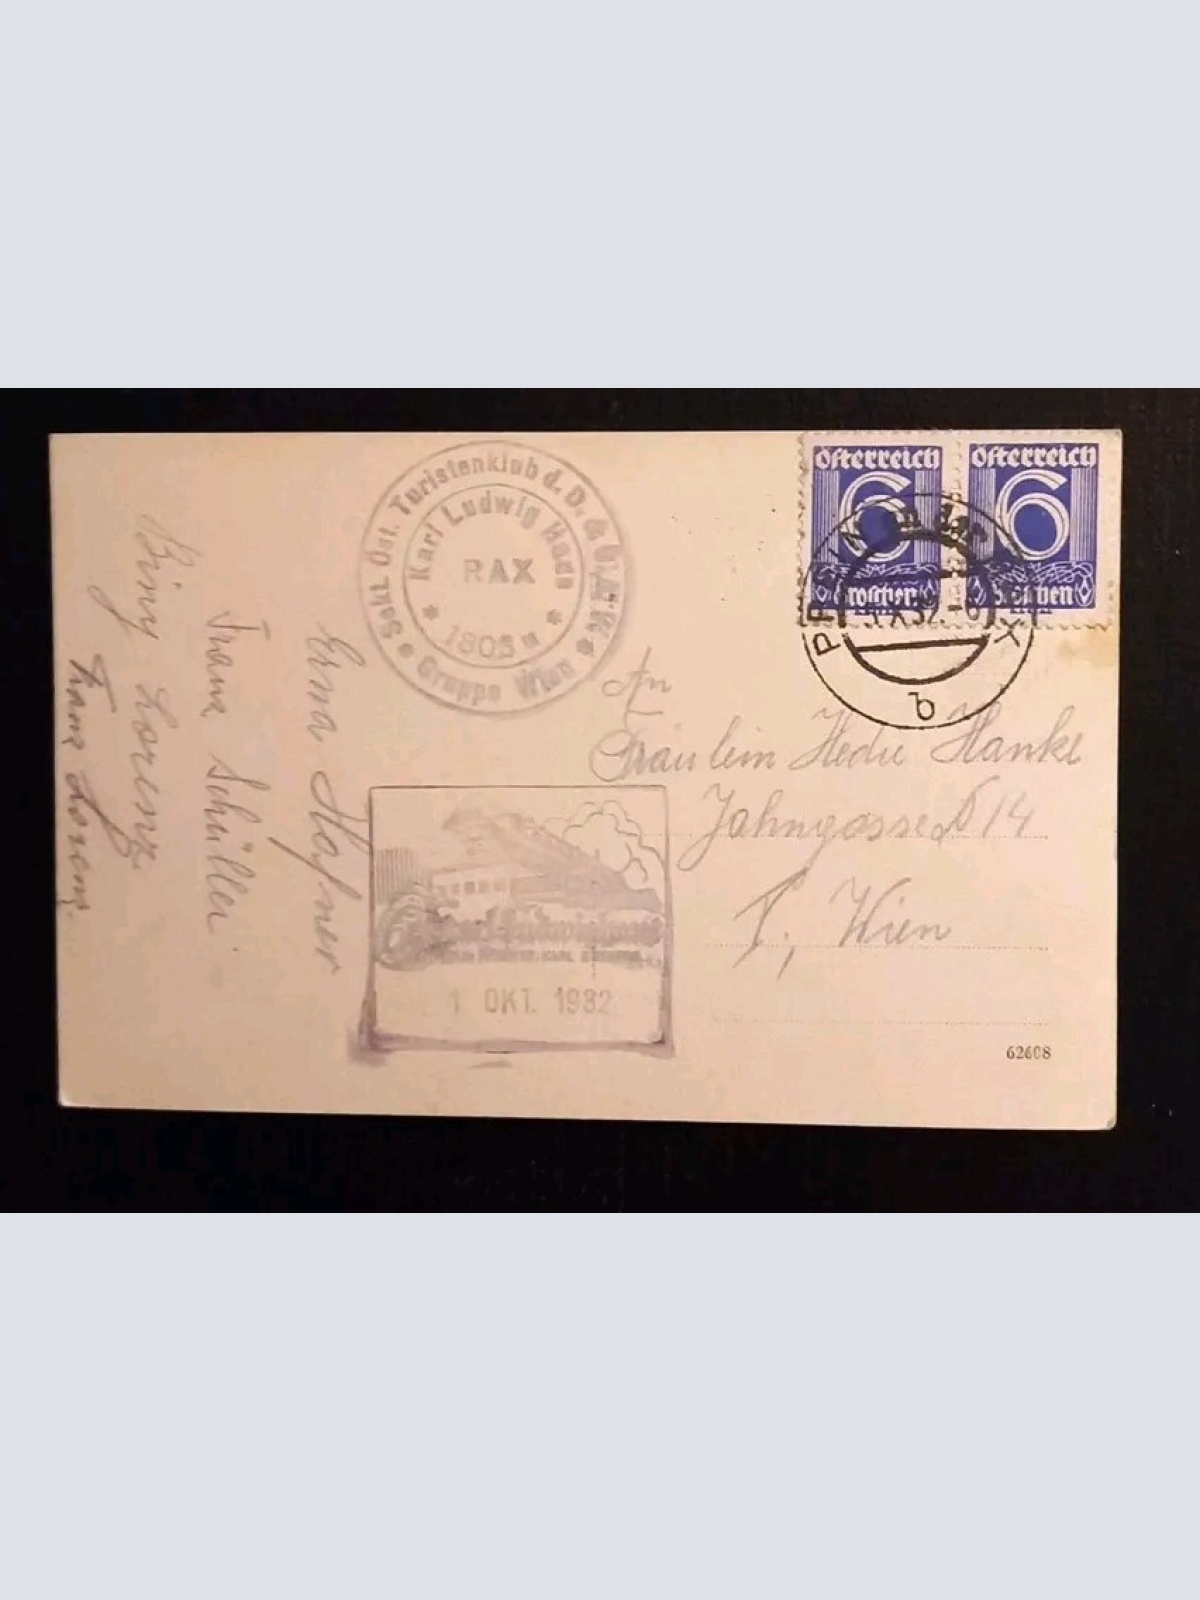 Österreich Österreich
6 6
Groschen Groschen
PREIN an der RAX
X 32
b
Sekt. Öst. Turistenklub d. D. & Ö. A. K.
Karl Ludwig Haus
RAX
1803 m
Gruppe Wien
An
Fräulein Hedie Hanke
Jahngasse 14
Wien
1. OKT. 1932
62608
Erna Hafner
Franz Schüller
Lorenz
Franz Lorenz